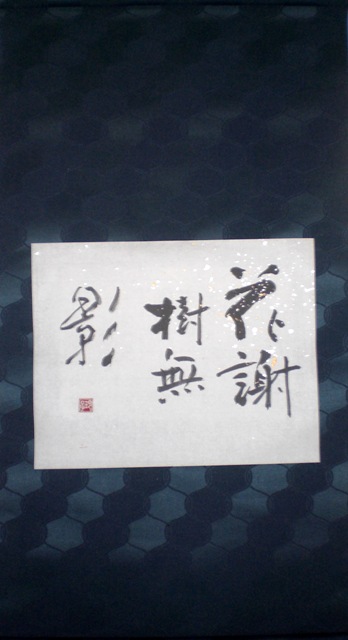 花謝
樹無
影